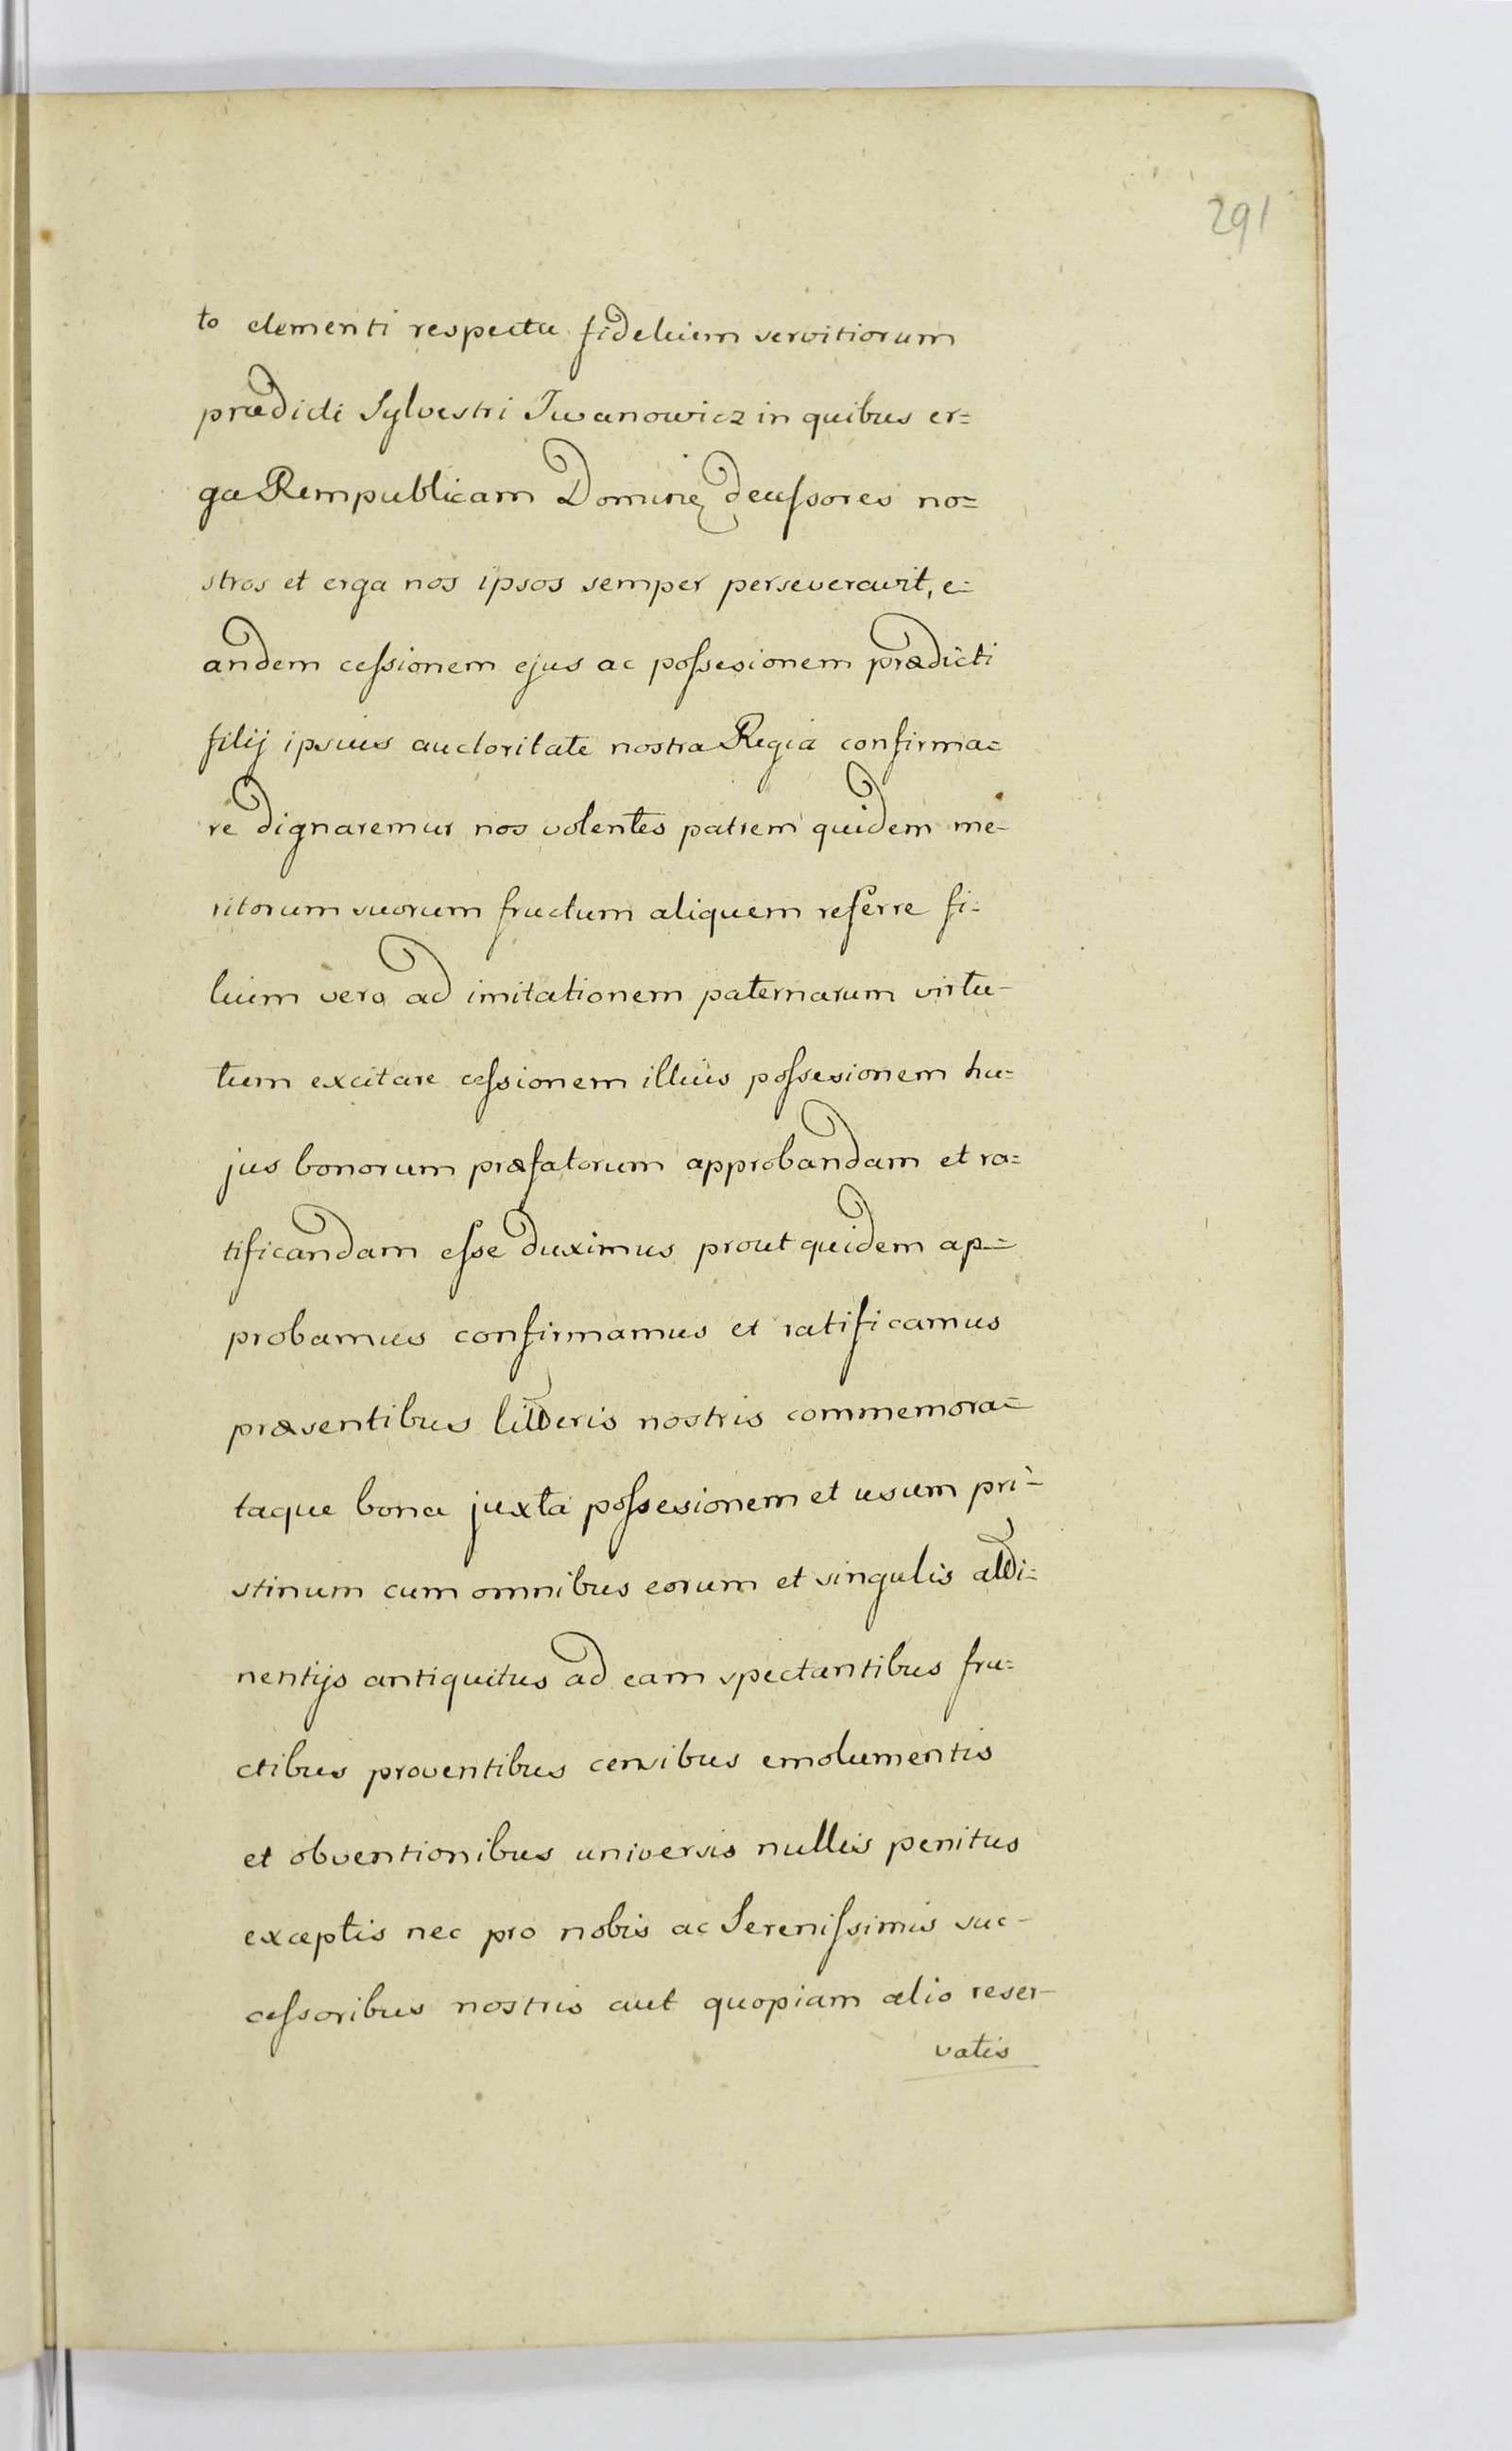 291
to clementi respectu fidelium servitiorum
prædicti Sylvestri Iwanowicz in quibus er=
ga Rempublicam Dominę deussores no=
stros et erga nos ipsos semper perseveravit, e=
andem cessionem ejus ac possesionem prædicti
filij ipsius auctoritate nostra Regia confirma=
re dignaremur nos volentes patrem quidem me-
ritorum suorum fructum aliquem referre fi=
lium vero ad imitationem paternarum virtu-
tum excitare cessionem illius possesionem hu=
jus bonorum præfatorum approbandam et ra=
tificandam esse duximus prout quidem ap=
probamus confirmamus et ratificamus
præsentibus litteris nostris commemora=
taque bona juxta possesionem et usum pri-
stinum cum omnibus eorum et singulis atti=
nentijs antiquitus ad eam spectantibus fru=
ctibus proventibus censibus emolumentis
et obventionibus universis nullis penitus
exceptis nec pro nobis ac Serenissimis suc-
cessoribus nostris aut quopiam alio reser-
vatis